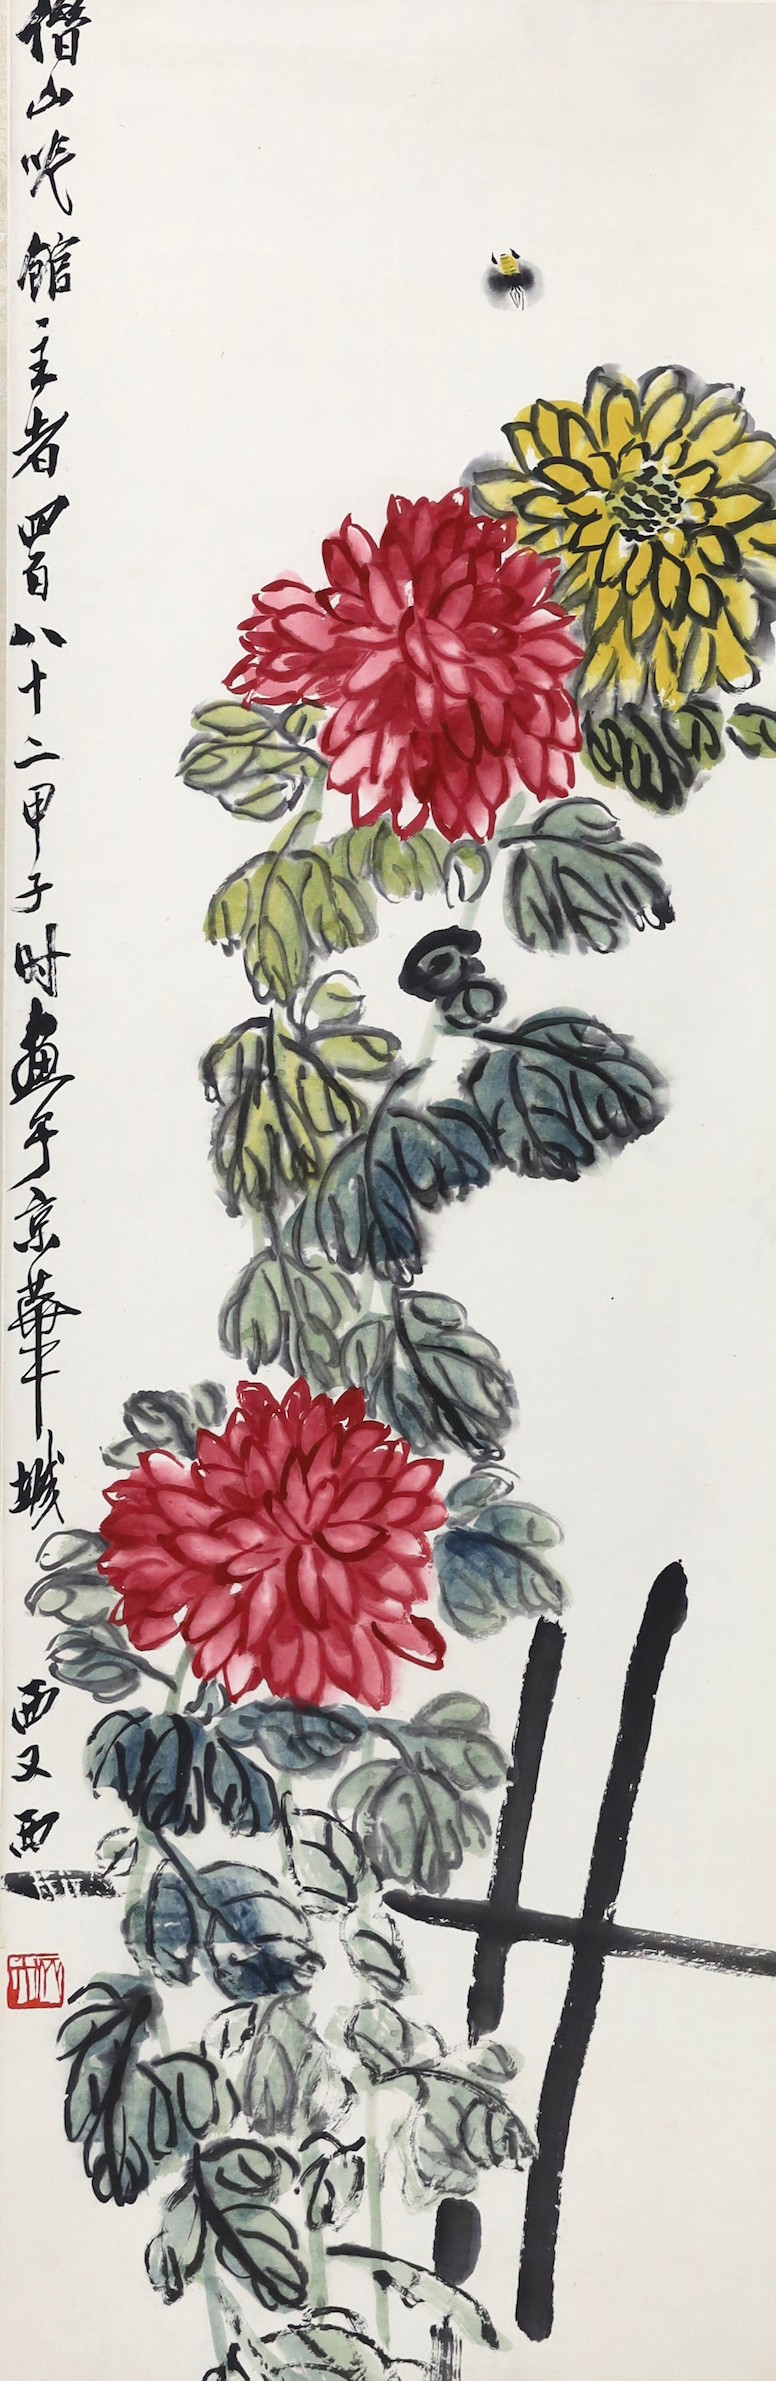 借山吟館主者四百八十二甲子时畫于京華城 西又西